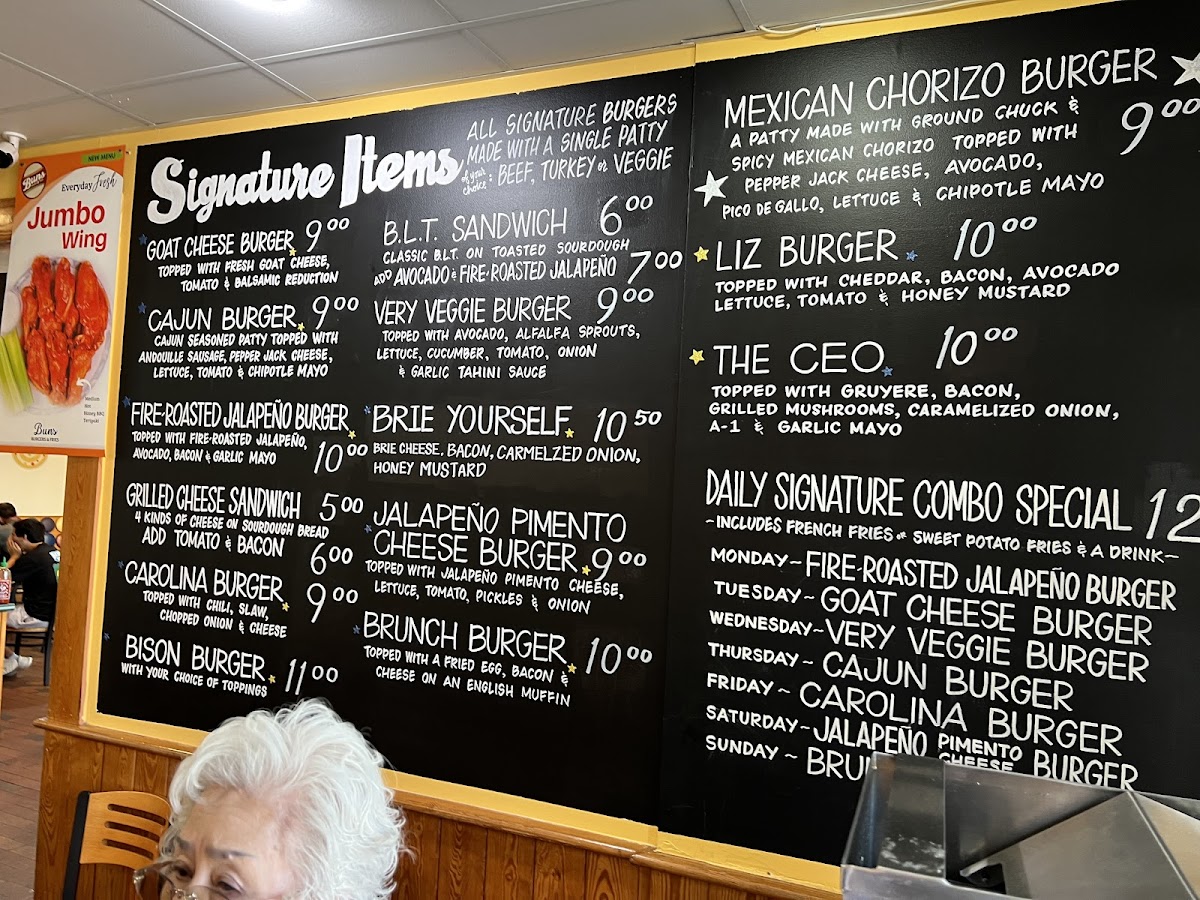 NEW MENU
Buns
Everyday Fresh
Jumbo
Wing
Medium
Hot
Honey BBQ
Teriyaki
Buns
BURGERS & FRIES
Signature Items
ALL SIGNATURE BURGERS
MADE WITH A SINGLE PATTY
of your choice: BEEF, TURKEY or VEGGIE
GOAT CHEESE BURGER 9.00
TOPPED WITH FRESH GOAT CHEESE,
TOMATO & BALSAMIC REDUCTION
CAJUN BURGER 9.00
CAJUN SEASONED PATTY TOPPED WITH
ANDOUILLE SAUSAGE, PEPPER JACK CHEESE,
LETTUCE, TOMATO & CHIPOTLE MAYO
FIRE-ROASTED JALAPEÑO BURGER
TOPPED WITH FIRE-ROASTED JALAPEÑO,
AVOCADO, BACON & GARLIC MAYO 10.00
GRILLED CHEESE SANDWICH 5.00
4 KINDS OF CHEESE ON SOURDOUGH BREAD
ADD TOMATO & BACON 6.00
CAROLINA BURGER 9.00
TOPPED WITH CHILI, SLAW,
CHOPPED ONION & CHEESE
BISON BURGER 11.00
WITH YOUR CHOICE OF TOPPINGS
B.L.T. SANDWICH 6.00
CLASSIC B.L.T. ON TOASTED SOURDOUGH
ADD AVOCADO & FIRE-ROASTED JALAPEÑO 7.00
VERY VEGGIE BURGER 9.00
TOPPED WITH AVOCADO, ALFALFA SPROUTS,
LETTUCE, CUCUMBER, TOMATO, ONION
& GARLIC TAHINI SAUCE
BRIE YOURSELF 10.50
BRIE CHEESE, BACON, CARMELZED ONION,
HONEY MUSTARD
JALAPEÑO PIMENTO
CHEESE BURGER 9.00
TOPPED WITH JALAPEÑO PIMENTO CHEESE,
LETTUCE, TOMATO, PICKLES & ONION
BRUNCH BURGER 10.00
TOPPED WITH A FRIED EGG, BACON &
CHEESE ON AN ENGLISH MUFFIN
MEXICAN CHORIZO BURGER
A PATTY MADE WITH GROUND CHUCK & 9.00
SPICY MEXICAN CHORIZO TOPPED WITH
PEPPER JACK CHEESE, AVOCADO,
PICO DE GALLO, LETTUCE & CHIPOTLE MAYO
LIZ BURGER 10.00
TOPPED WITH CHEDDAR, BACON, AVOCADO
LETTUCE, TOMATO & HONEY MUSTARD
THE CEO 10.00
TOPPED WITH GRUYERE, BACON,
GRILLED MUSHROOMS, CARAMELIZED ONION,
A-1 & GARLIC MAYO
DAILY SIGNATURE COMBO SPECIAL 12
~INCLUDES FRENCH FRIES or SWEET POTATO FRIES & A DRINK~
MONDAY~FIRE-ROASTED JALAPEÑO BURGER
TUESDAY~GOAT CHEESE BURGER
WEDNESDAY~VERY VEGGIE BURGER
THURSDAY~CAJUN BURGER
FRIDAY~CAROLINA BURGER
SATURDAY~JALAPEÑO PIMENTO CHEESE BURGER
SUNDAY~BRU